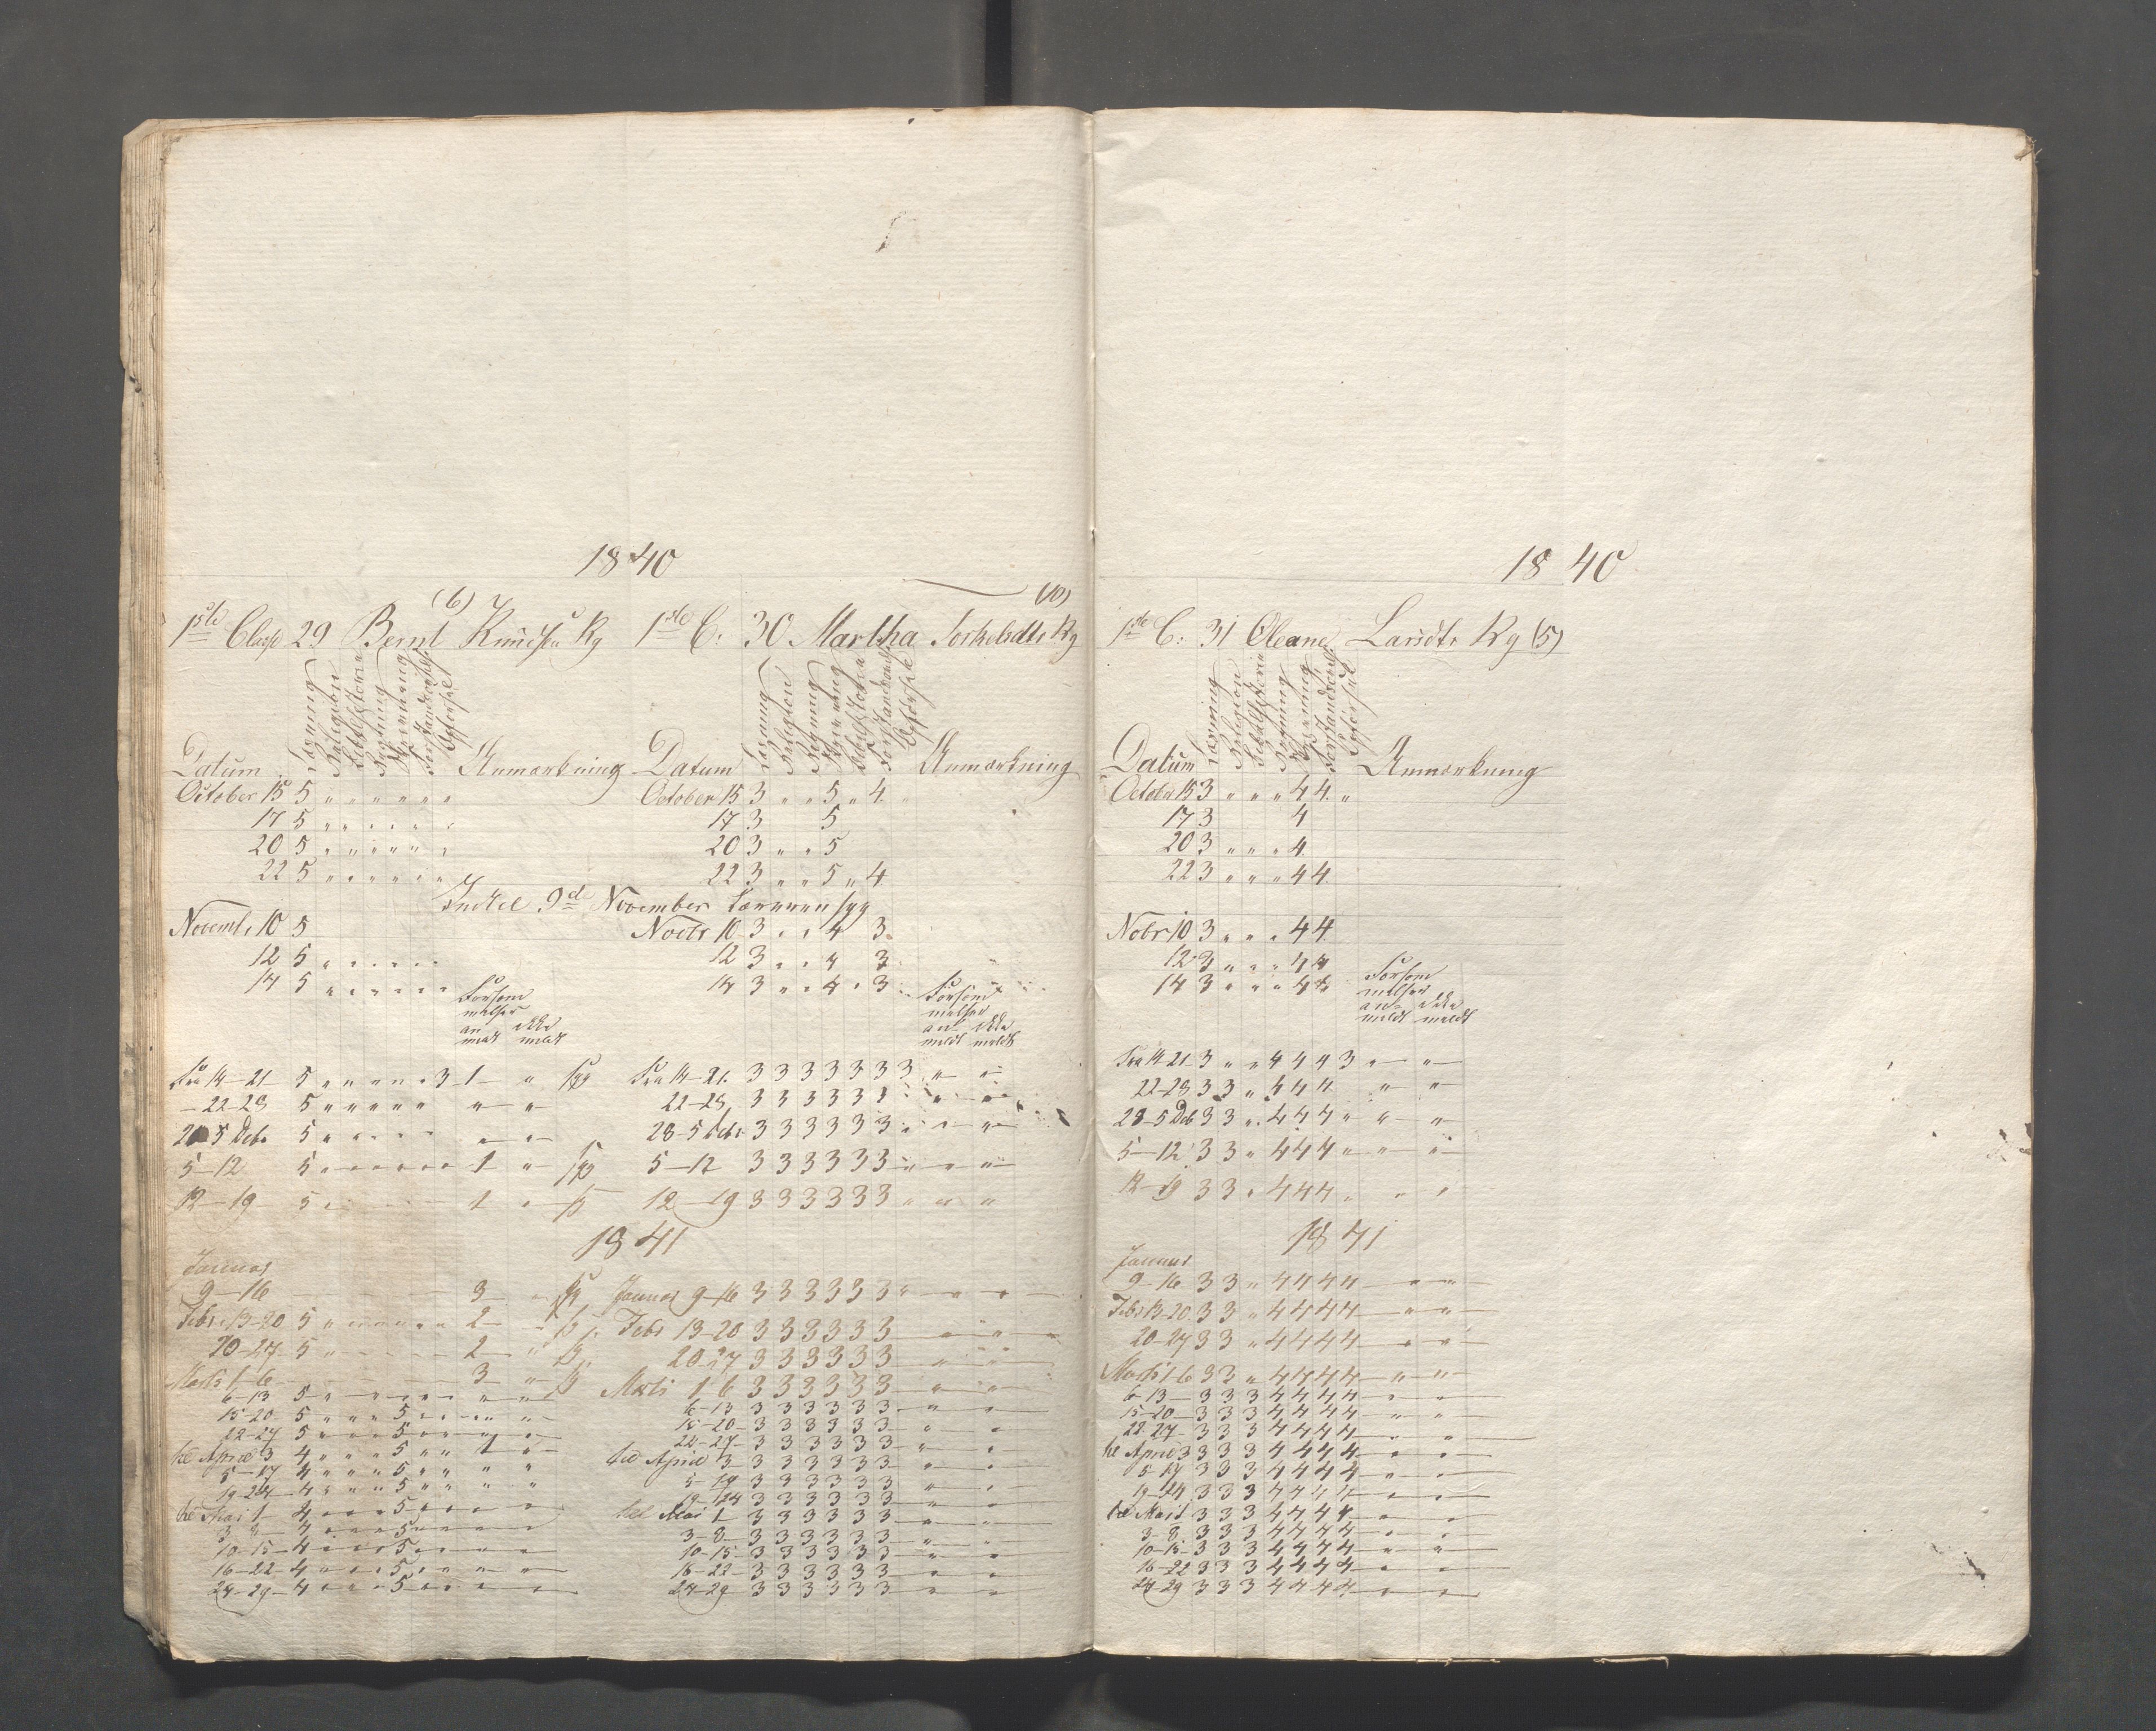 1840
1ste Classe 29 Bernt Knudsen Ry (6)
Læsning
Religion
Bibelhistorie
Regning
Skrivning
Forstandsøvelse
Opførsel
Datum Anmærkning
October 15 5 " " " " " "
17 5 " " " " " "
20 5 " " " " " "
22 5 " " " " " "
Indtil 9de November Læreren syg
Novembr 10 5
12 5 " " " " "
14 5 " " " " " "
Forsøm
melser
an ikke
meldt meldt
Fra 14-21 5 " " " " " 3 1 " syg
22-28 5 " " " " " " "
28-5 Debr 5 " " " " " "
5-12 5 " " " " " " 1 " syg
12-19 5 1
1841
Januar
9-16 3
Febr 13-20 5 " " " " " " 2
20-27 5 2
Marts 1-6 3
6-13 5
15-20 5 " " " 5
22-27 5 " " " 5
til April 3 4 " " " 5 " " 1 "
5-17 4 " " " 5 " " " "
19-24 4 " " " 5 " " " "
til Mai 1 4 " " " 5 " " " "
3-8 4 " " " 5 " " " "
10-15 4 " " " 5 " " " "
16-22 4 " " " 5 " " " "
24-29 4 " " " 5 " " " "
1ste C: 30 Martha Torkelsdtr Ry (10)
Læsning
Religion
Regning
Skrivning
Bibelhistorie
Forstandsøvelse
Opførsel
Datum Anmærkning
October 15 3 " " 5 " 4
17 3 5
20 3 " " 5
22 3 " " 5 " 4
Novbr 10 3 " " 4 3
12 3 " " 4 3
14 3 " " 4 " 3
Forsøm
melser
an ikke
meldt meldt
Fra 14-21 3 3 3 3 3 3 3 " "
22-28 3 3 3 3 3 3 " " "
28-5 Debr 3 3 3 3 3 3 " " "
5-12 3 3 3 3 3 3 " " "
12-19 3 3 3 3 3 3 " " "
Januar 9-16 3 3 3 3 3 3 " " "
Febr 13-20 3 3 3 3 3 3 " "
20-27 3 3 3 3 3 3 " "
Marts 1-6 3 3 3 3 3 3 " "
6-13 3 3 3 3 3 3 " "
15-20 3 3 3 3 3 3 " "
22-27 3 3 3 3 3 3 " "
til April 3 3 3 3 3 3 3 " "
5-17 3 3 3 3 3 3 " "
19-24 3 3 3 3 3 3 " "
til Mai 1 3 3 3 3 3 3 " "
3-8 3 3 3 3 3 3 " "
10-15 3 3 3 3 3 3 " "
16-22 3 3 3 3 3 3 " "
24-29 3 3 3 3 3 3 " "
1840
1ste C: 31 Oleane Larsdtr Ry (5)
Læsning
Religion
Bibelhistorie
Regning
Skrivning
Forstandsøvels
Opførsel
Datum Anmærkning
October 15 3 " " " 4 4 "
17 3 4
20 3 " " " 4
22 3 " " " 4 4
Nobr 10 3 " " " 4 4
12 3 " " " 4 4
14 3 " " " 4 4
Forsøm
melser
an ikke
meldt meldt
Fra 14-21 3 " " 4 4 4 3 " "
22-28 3 3 " 4 4 4 " "
28-5 Deb 3 3 " 4 4 4 " " "
5-12 3 3 " 4 4 4 " " "
12-19 3 3 " 4 4 4 " " "
1841
Januar
9-16 3 3 " 4 4 4 4 " "
Febr 13-20 3 3 " 4 4 4 4 " "
20-27 3 3 " 4 4 4 4 " "
Marts 1-6 3 3 " 4 4 4 4 " "
6-13 3 3 3 4 4 4 4 " "
15-20 3 3 3 4 4 4 4 " "
22-27 3 3 3 4 4 4 4 " "
til April 3 3 3 3 4 4 4 4 " "
5-17 3 3 3 4 4 4 4 " "
19-24 3 3 3 4 4 4 4 " "
til Mai 1 3 3 3 4 4 4 4 " "
3-8 3 3 3 4 4 4 4 " "
10-15 3 3 3 4 4 4 4 " "
16-22 3 3 3 4 4 4 4 " "
24-29 3 3 3 4 4 4 4 " "